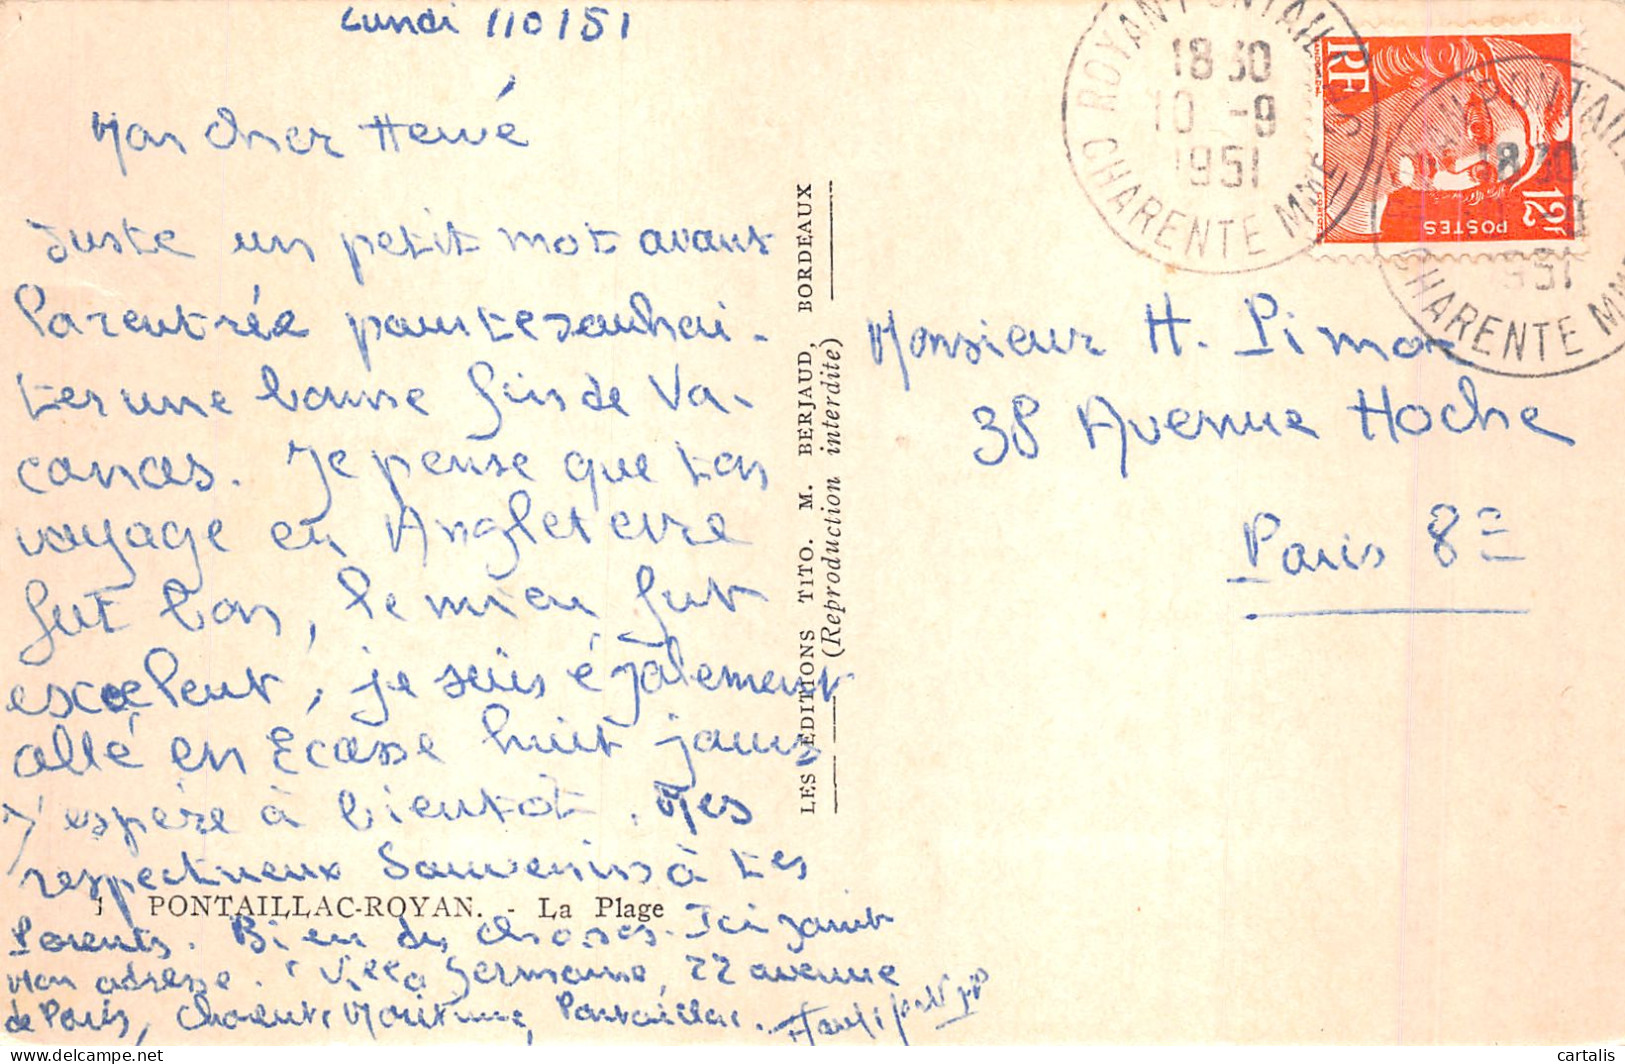 Lundi 110151
Mon cher Hervé
Juste un petit mot avant
la rentrée pour te souhai-
ter une bonne fin de Va-
cances. Je pense que ton
voyage en Angleterre
fut bon, le mien fut
excelent, je suis également
allé en Écosse huit jours
J'espère à bientôt. Mes
respectueux Souvenirs à tes
Parents. Bien des choses. Ici joint
mon adresse. "Villa Germaine, 22 avenue
de Paris, Charente Maritime, Pontaillac.
1 PONTAILLAC-ROYAN. - La Plage
LES ÉDITIONS TITO. M. BERJAUD, BORDEAUX
(Reproduction interdite)
ROYAN-PONTAILLAC
18 30
10 -9
1951
CHARENTE MME
RF
POSTES
12F
18 30
951
CHARENTE MM
Monsieur H. Pimon
38 Avenue Hoche
Paris 8e
cartalis
delcampe.net